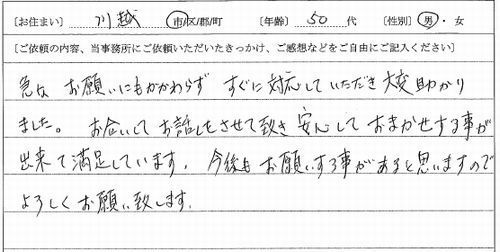 [お住まい] 川越 市/区/郡/町 [年齢] 50 代 [性別] 男・女
[ご依頼の内容、当事務所にご依頼いただいたきっかけ、ご感想などをご自由にご記入ください]
急な お願いにもかかわらず すぐに対応していただき 大変助かり
ました。 お会いして お話しをさせて致き 安心して おまかせする事が
出来て満足しています。 今後も お願いする事があると思いますので
よろしくお願い致します。